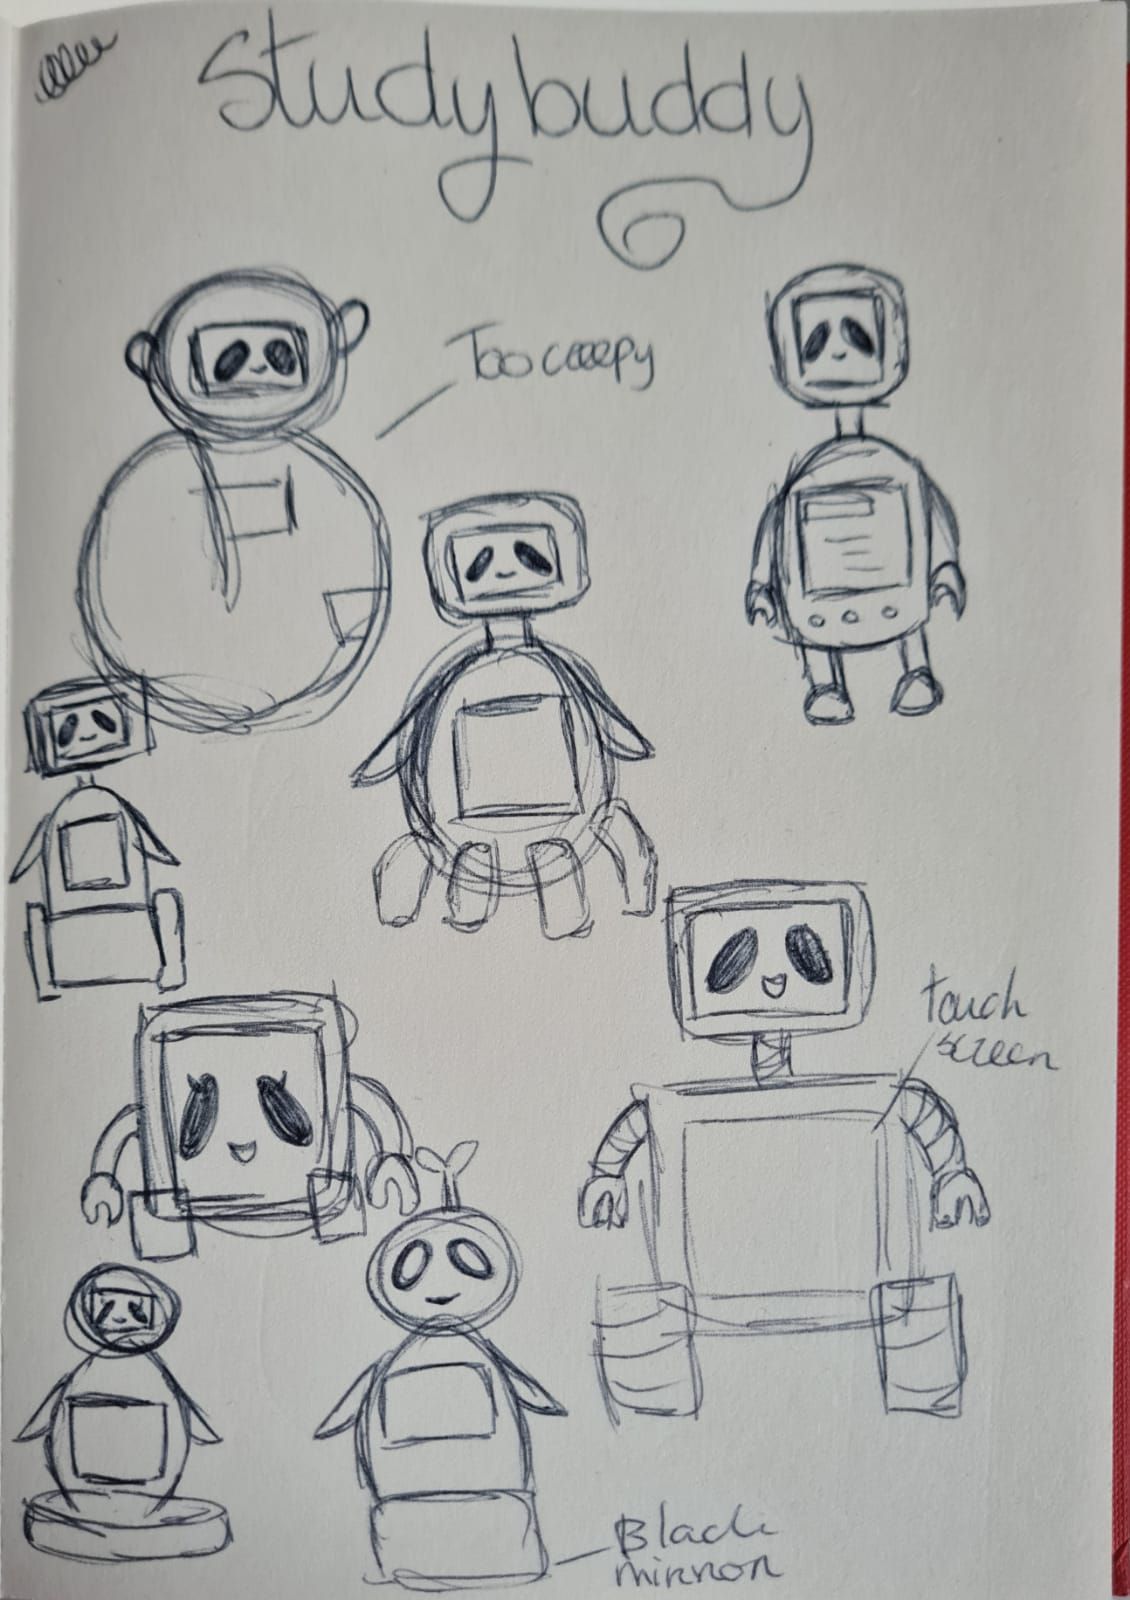 Study buddy
Too creepy
touch
screen
Black
mirror